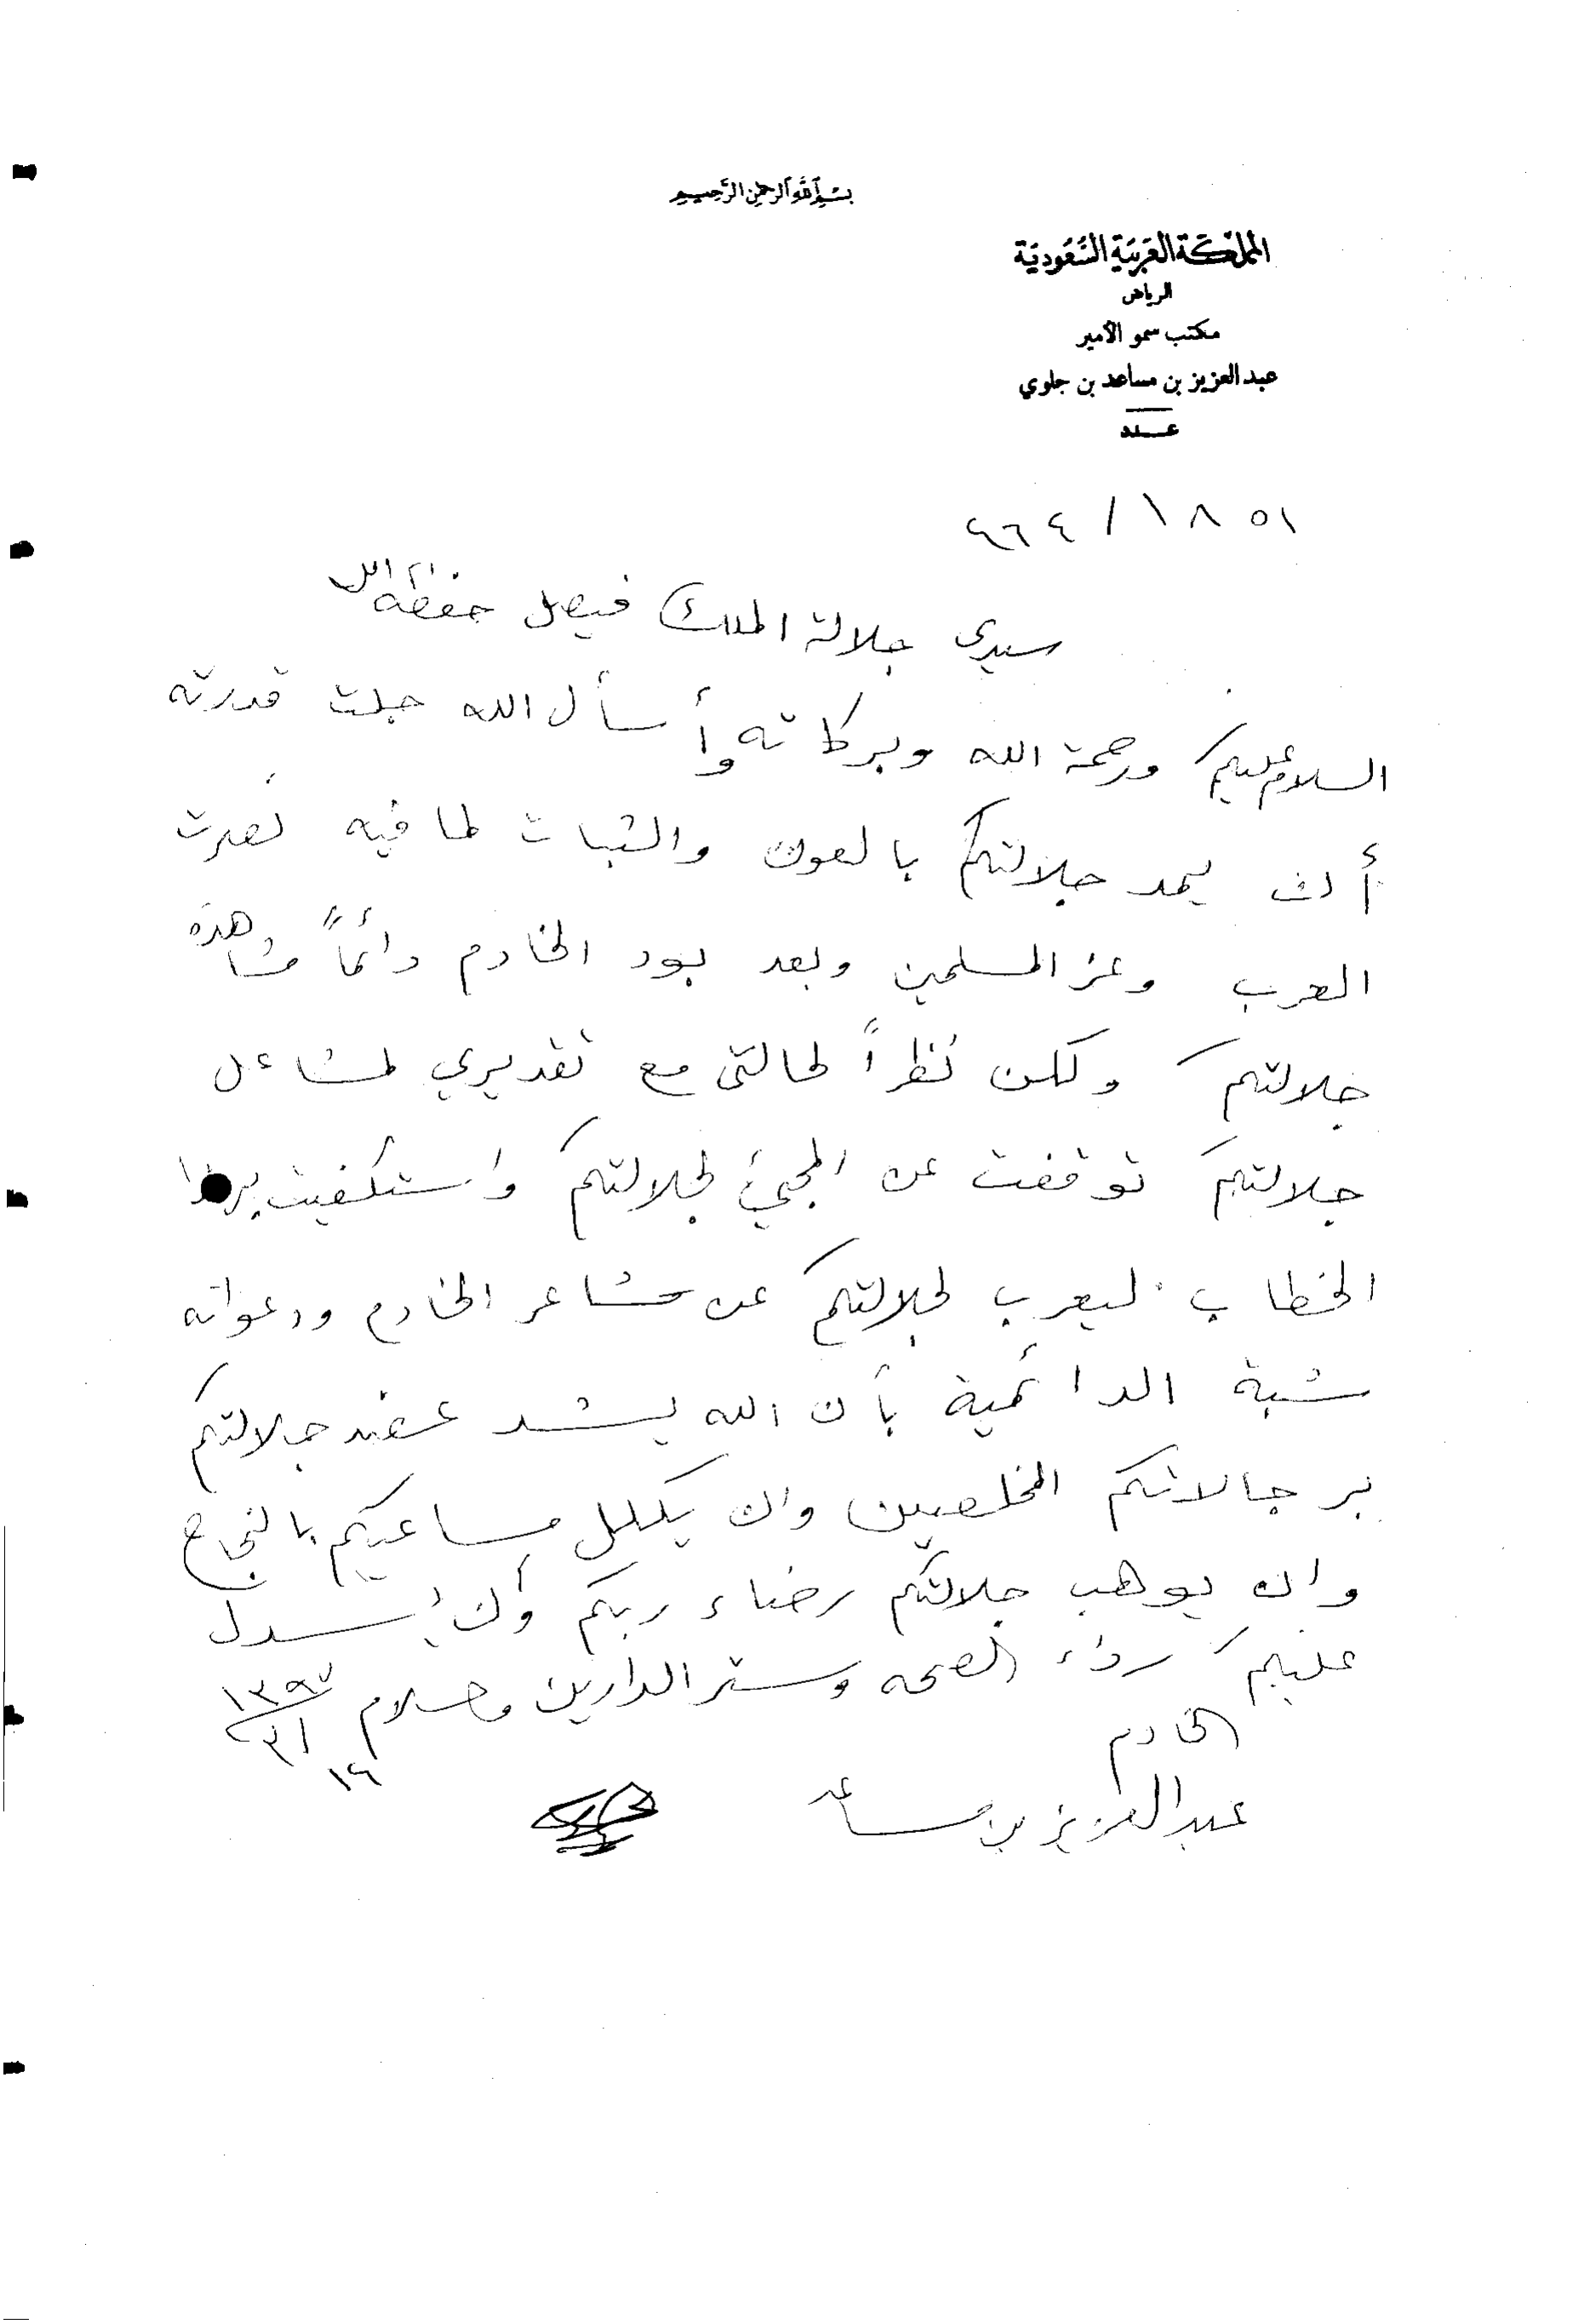 بسم الله الرحمن الرحيم
المملكة العربية السعودية
الرياض
مكتب سمو الأمير
عبد العزيز بن مساعد بن جلوي
عدد
١٨٥١/
سيدي جلالة الملك فيصل حفظه الله
السلام عليكم ورحمة الله وبركاته وأسأل الله جلت قدرته
أن يمد جلالتكم بالعون والثبات لما فيه نصرت
العرب وعز المسلمين وبعد بود الخادم دائماً مشاهدة
جلالتكم ولكن نظراً لحالتي مع تقديري لمشاغل
جلالتكم توقفت عن المجيئ لجلالتكم واستكفيت بهذا
الخطاب ليعرب لجلالتكم عن مشاعر الخادم ودعواته
شبة الدائمية بأن الله يشد عضد جلالتكم
برجالاتكم المخلصين وان يكلل مساعيكم بالنجاح
وان يوهب جلالتكم رضاء ربكم وأن يسدل
عليكم رداء الصحه وستر الدارين وسلام
الخادم
عبد العزيز بن مساعد